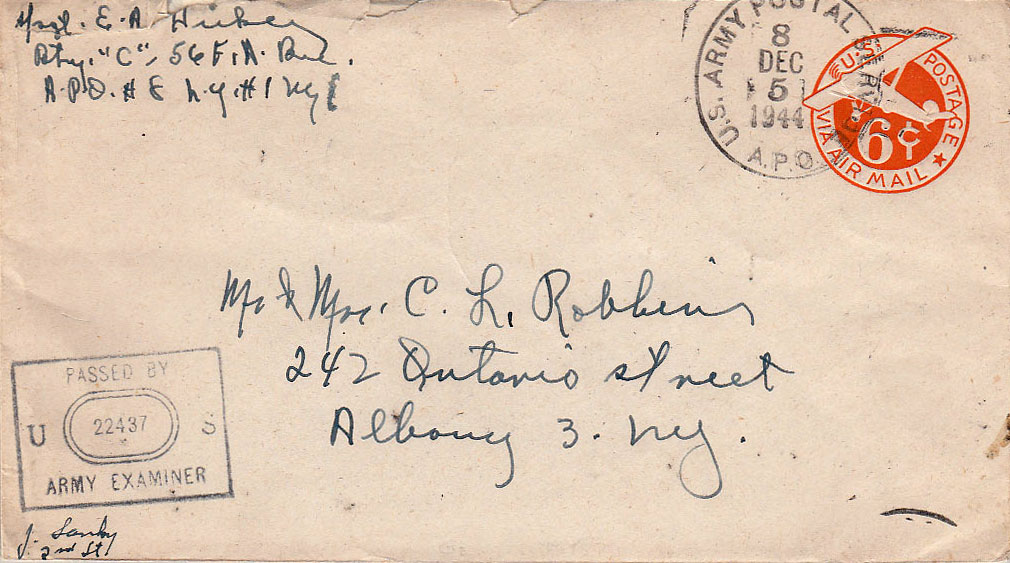 Msgt. E. A. Hickey
Btry. "C", 56 F.A. Bn.
A.P.O. # 8 N.Y. #1 NY
U.S. ARMY POSTAL SERVICE
8
DEC
5
1944
A.P.O.
U.S. POSTAGE
6¢
VIA AIR MAIL
Mr & Mrs. C. L. Robbins
242 Ontario street
Albany 3. NY.
PASSED BY
U 22437 S
ARMY EXAMINER
J.
2nd Lt